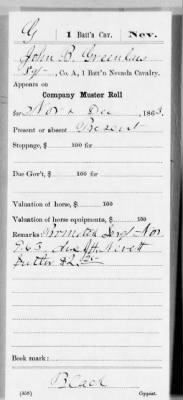 G | 1 Batt'n Cav. | Nev.
John B. Greenlaw
Sgt, Co. A, 1 Batt'n Nevada Cavalry.
Appears on
Company Muster Roll
for Nov & Dec, 1863.
Present or absent Present
Stoppage, $ 100 for
Due Gov't, $ 100 for
Valuation of horse, $ 100
Valuation of horse equipments, $ 100
Remarks: Promoted Sergt Nov
63 Due
Sutler $2
Book mark:
(858) Copyist.